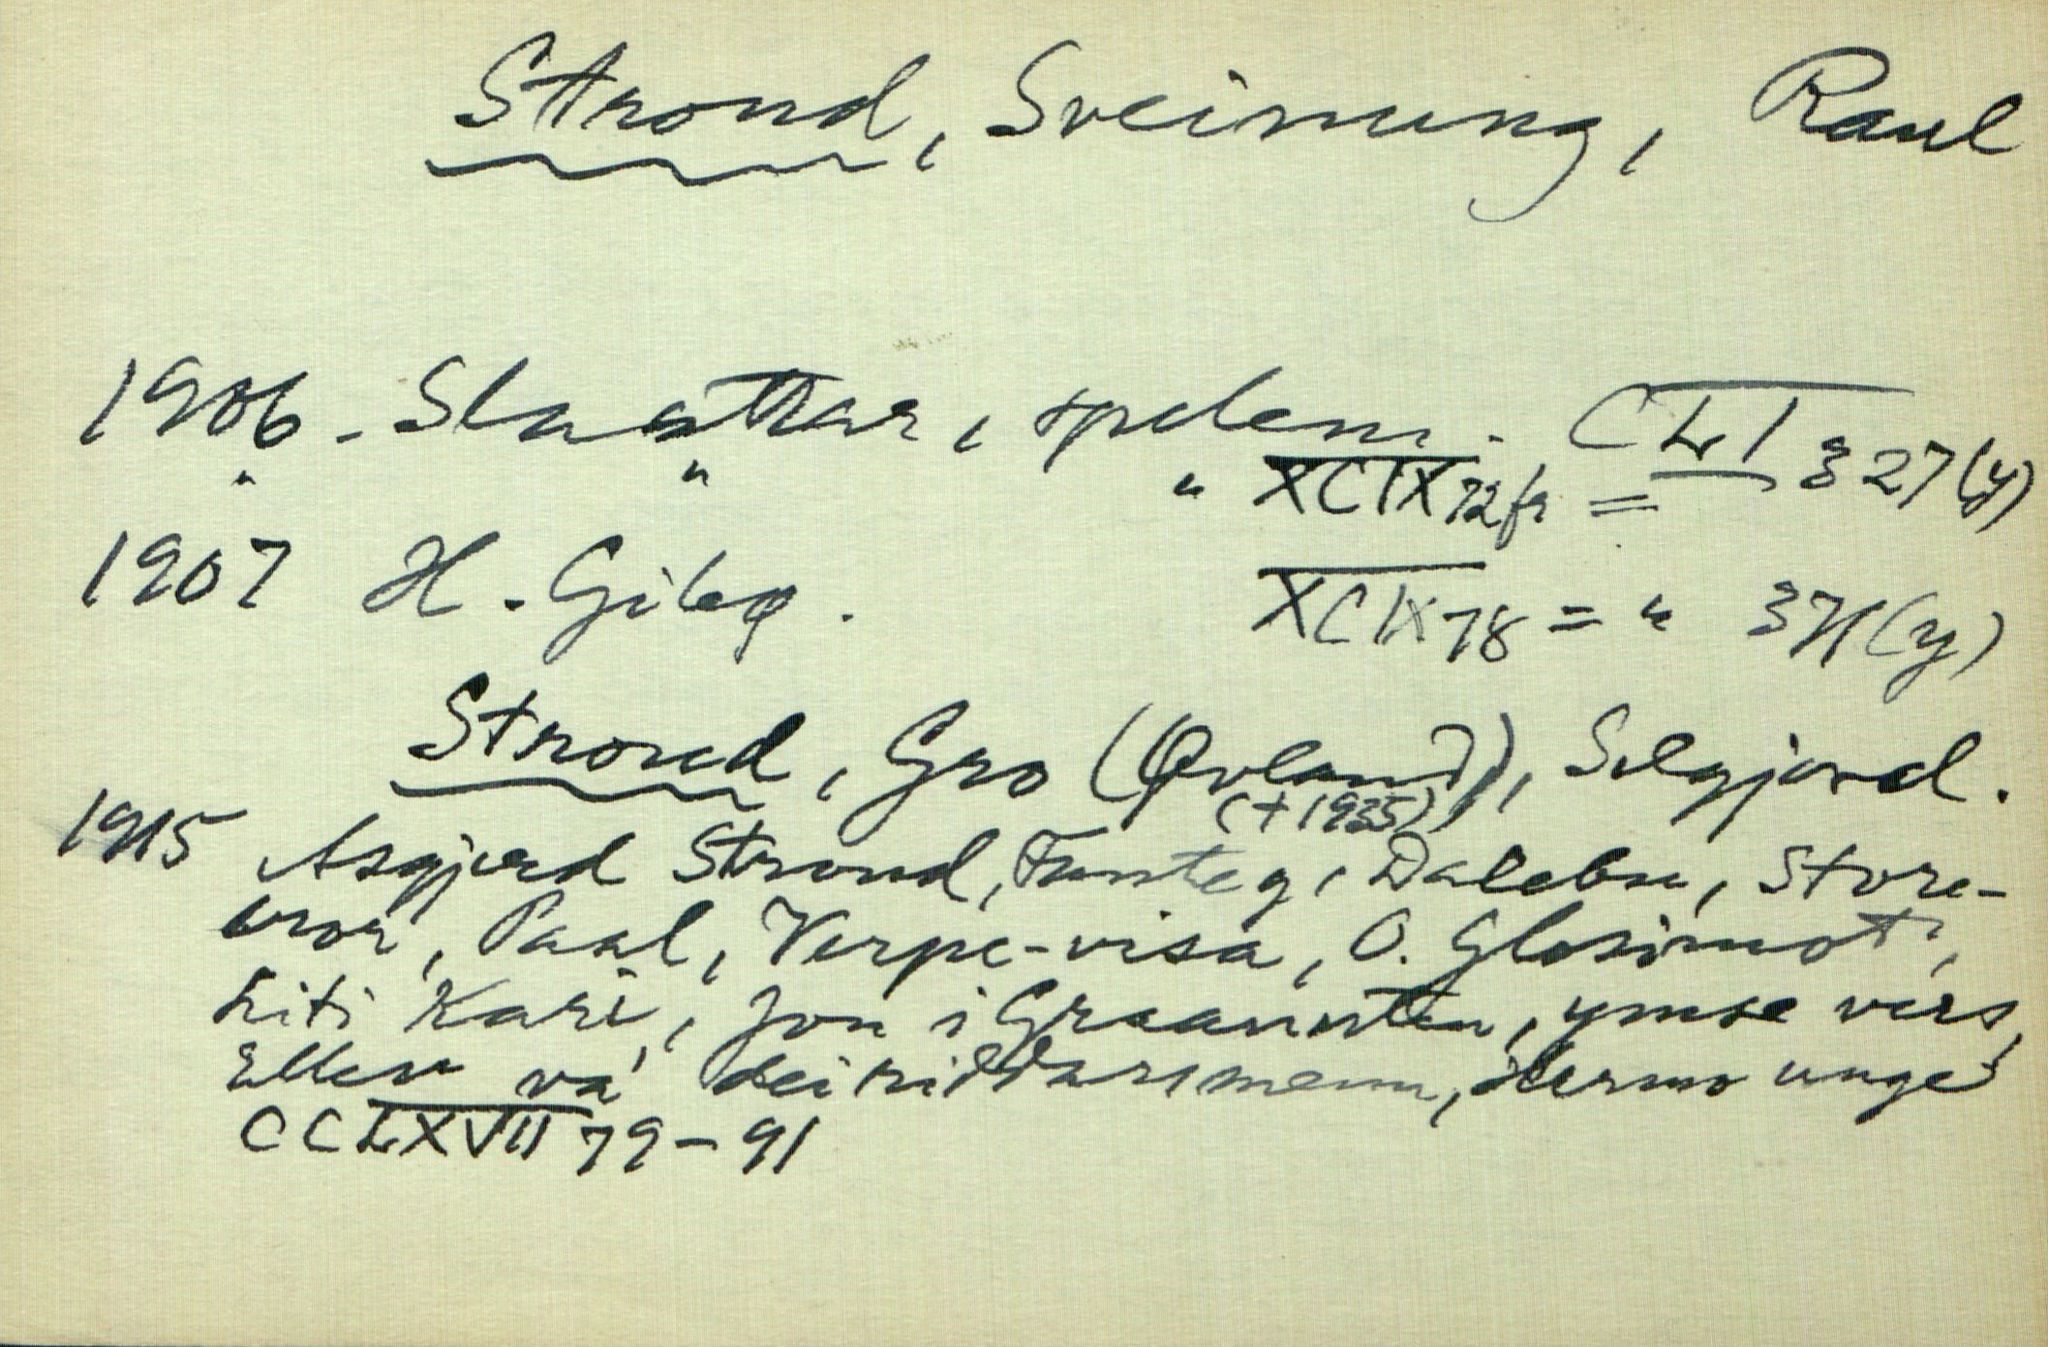 Strond, Sveinung, Raul
1906 - Slaattar, spelem. CLI 327(y)
" " " XCIX 72fr =
1907 H. Gibøq. XCIX 78 = " 371(y)
Strond, Gro (Øvland), Selgjord.
(+1935)
1915 Asgjerd Strond, Tusteg, Dalebu, Store-
bror, Paal, Verpe-visa, O. Glosimot,
Liti Kari, Jon i Graanuten, ymse vers,
Ellev va dei riddaremenn, Hermo unge
CCLXVII 79-91